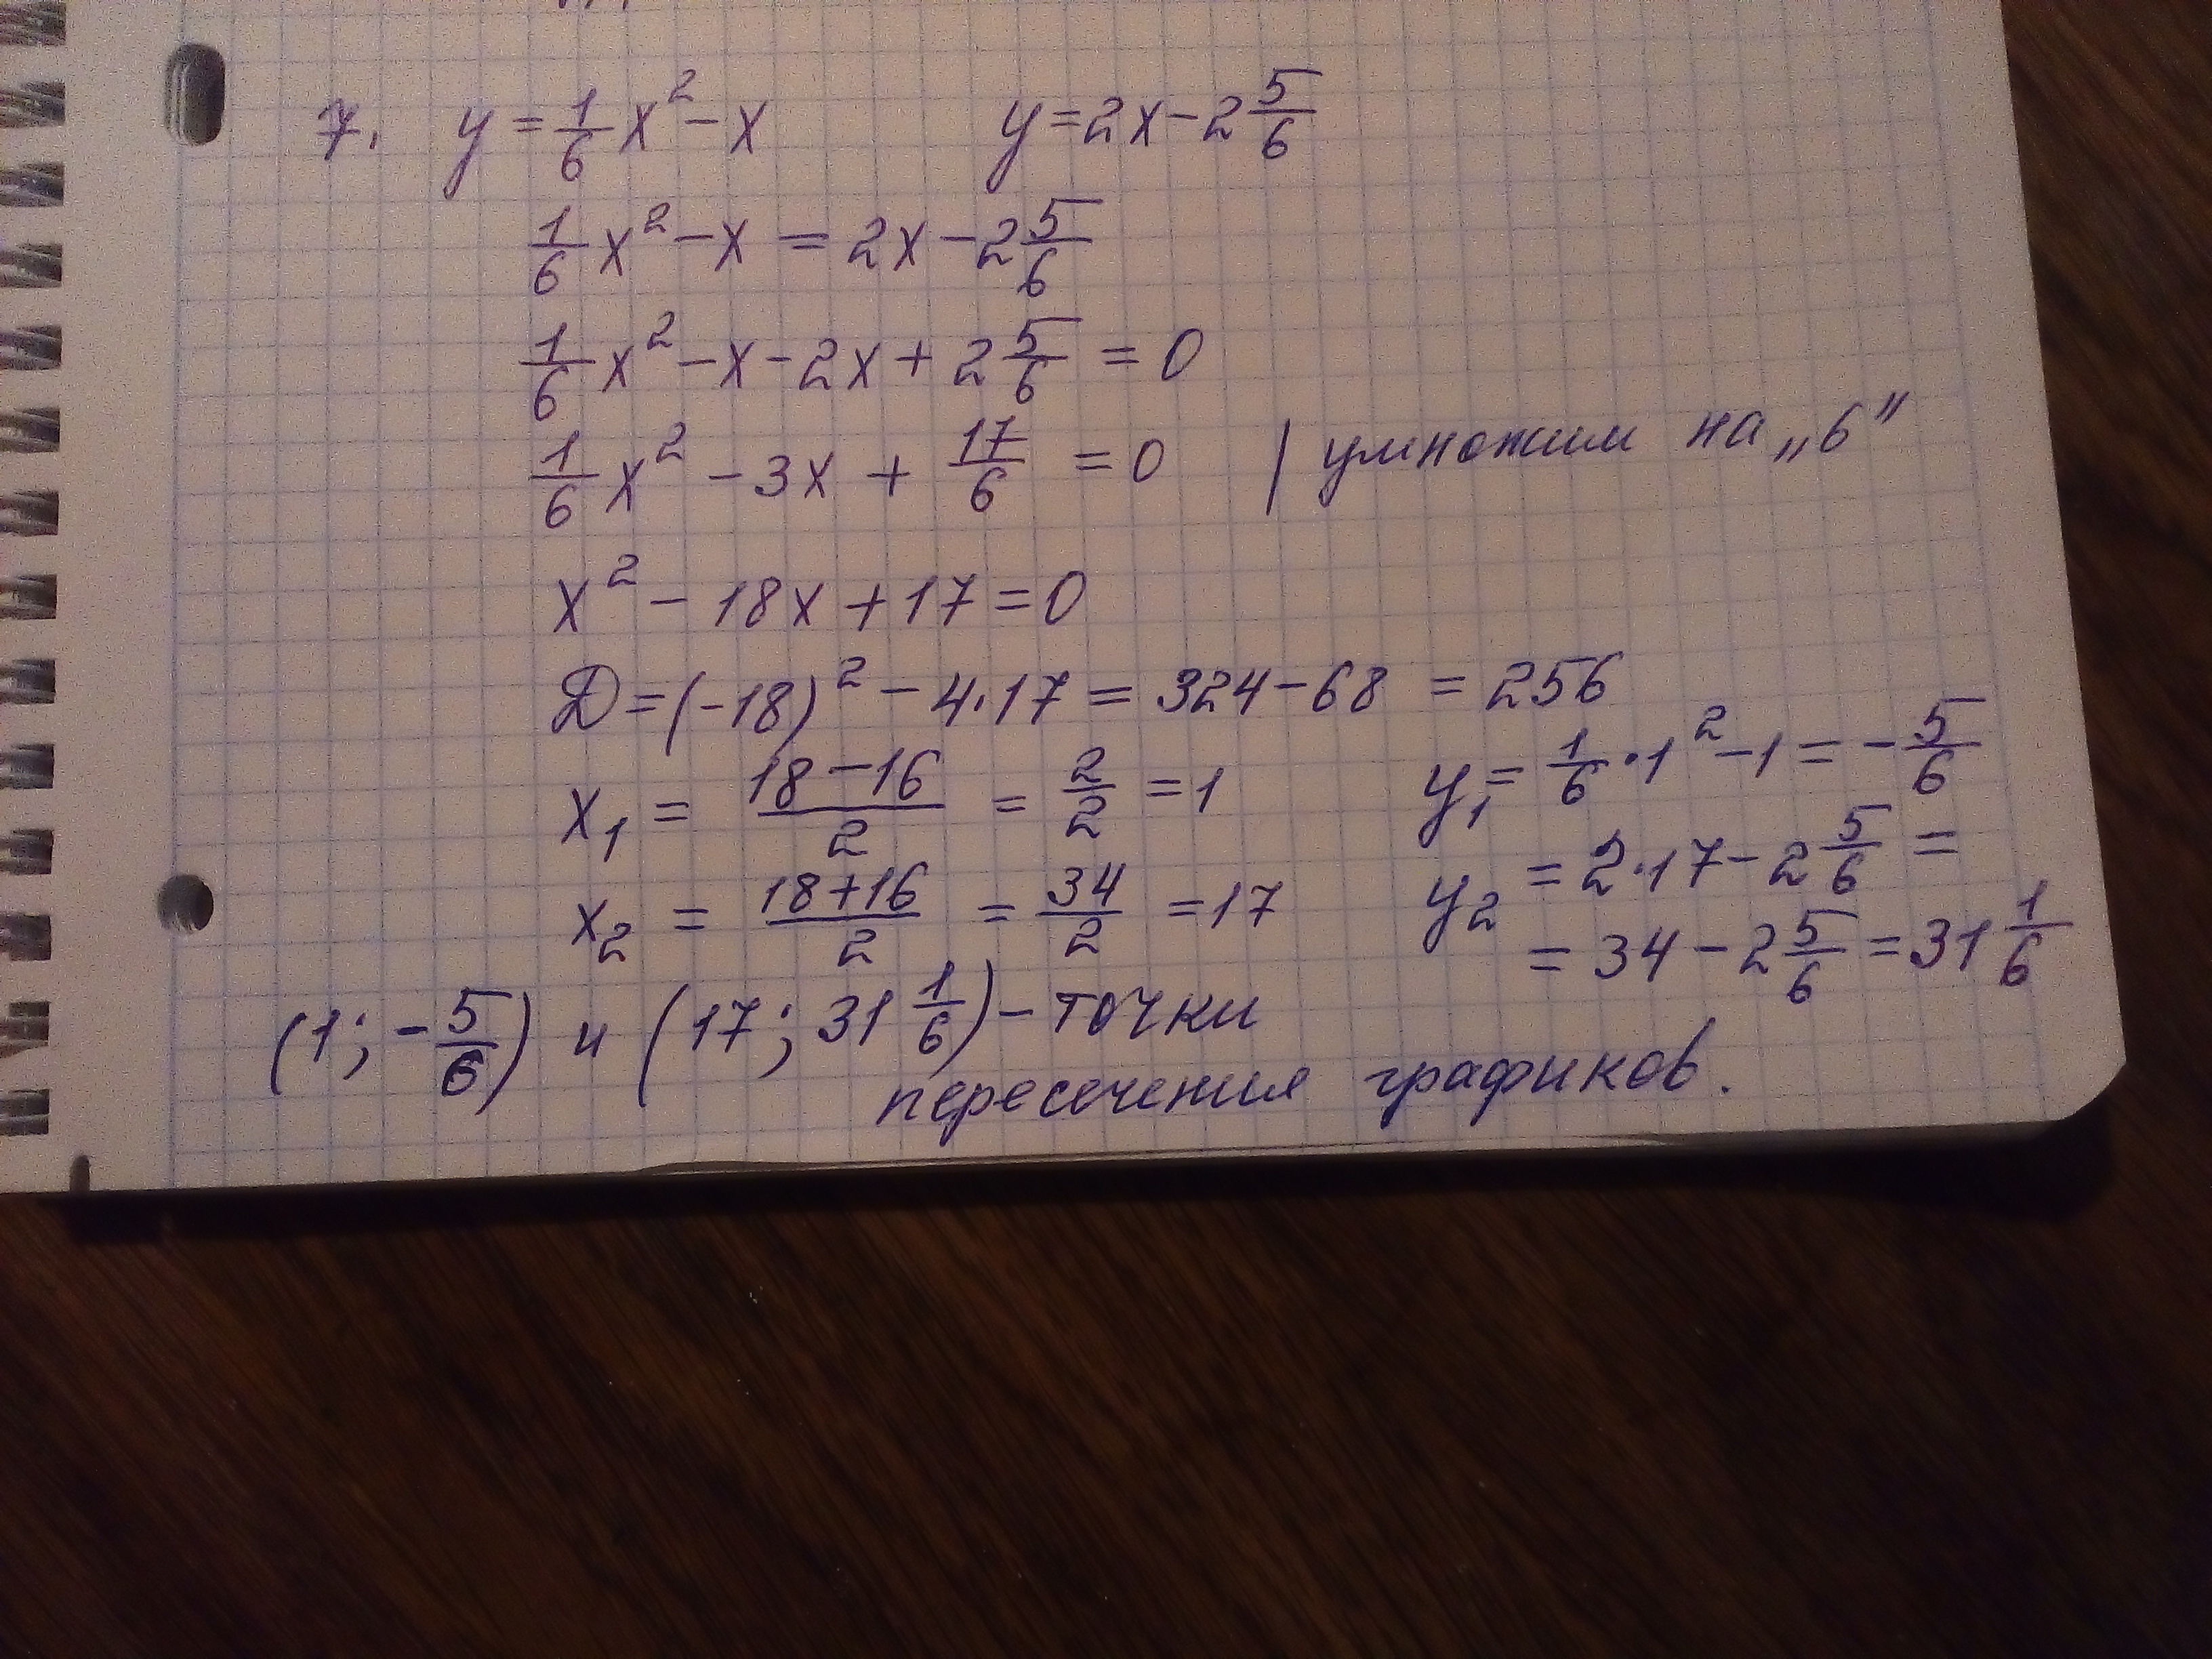 7. y = 1/6 x² - x y = 2x - 2 5/6
1/6 x² - x = 2x - 2 5/6
1/6 x² - x - 2x + 2 5/6 = 0
1/6 x² - 3x + 17/6 = 0 | умножим на „6”
x² - 18x + 17 = 0
Д = (-18)² - 4·17 = 324 - 68 = 256
x₁ = (18 - 16)/2 = 2/2 = 1 y₁ = 1/6 · 1² - 1 = - 5/6
x₂ = (18 + 16)/2 = 34/2 = 17 y₂ = 2·17 - 2 5/6 =
= 34 - 2 5/6 = 31 1/6
(1; - 5/6) и (17; 31 1/6) - точки
пересечения графиков.